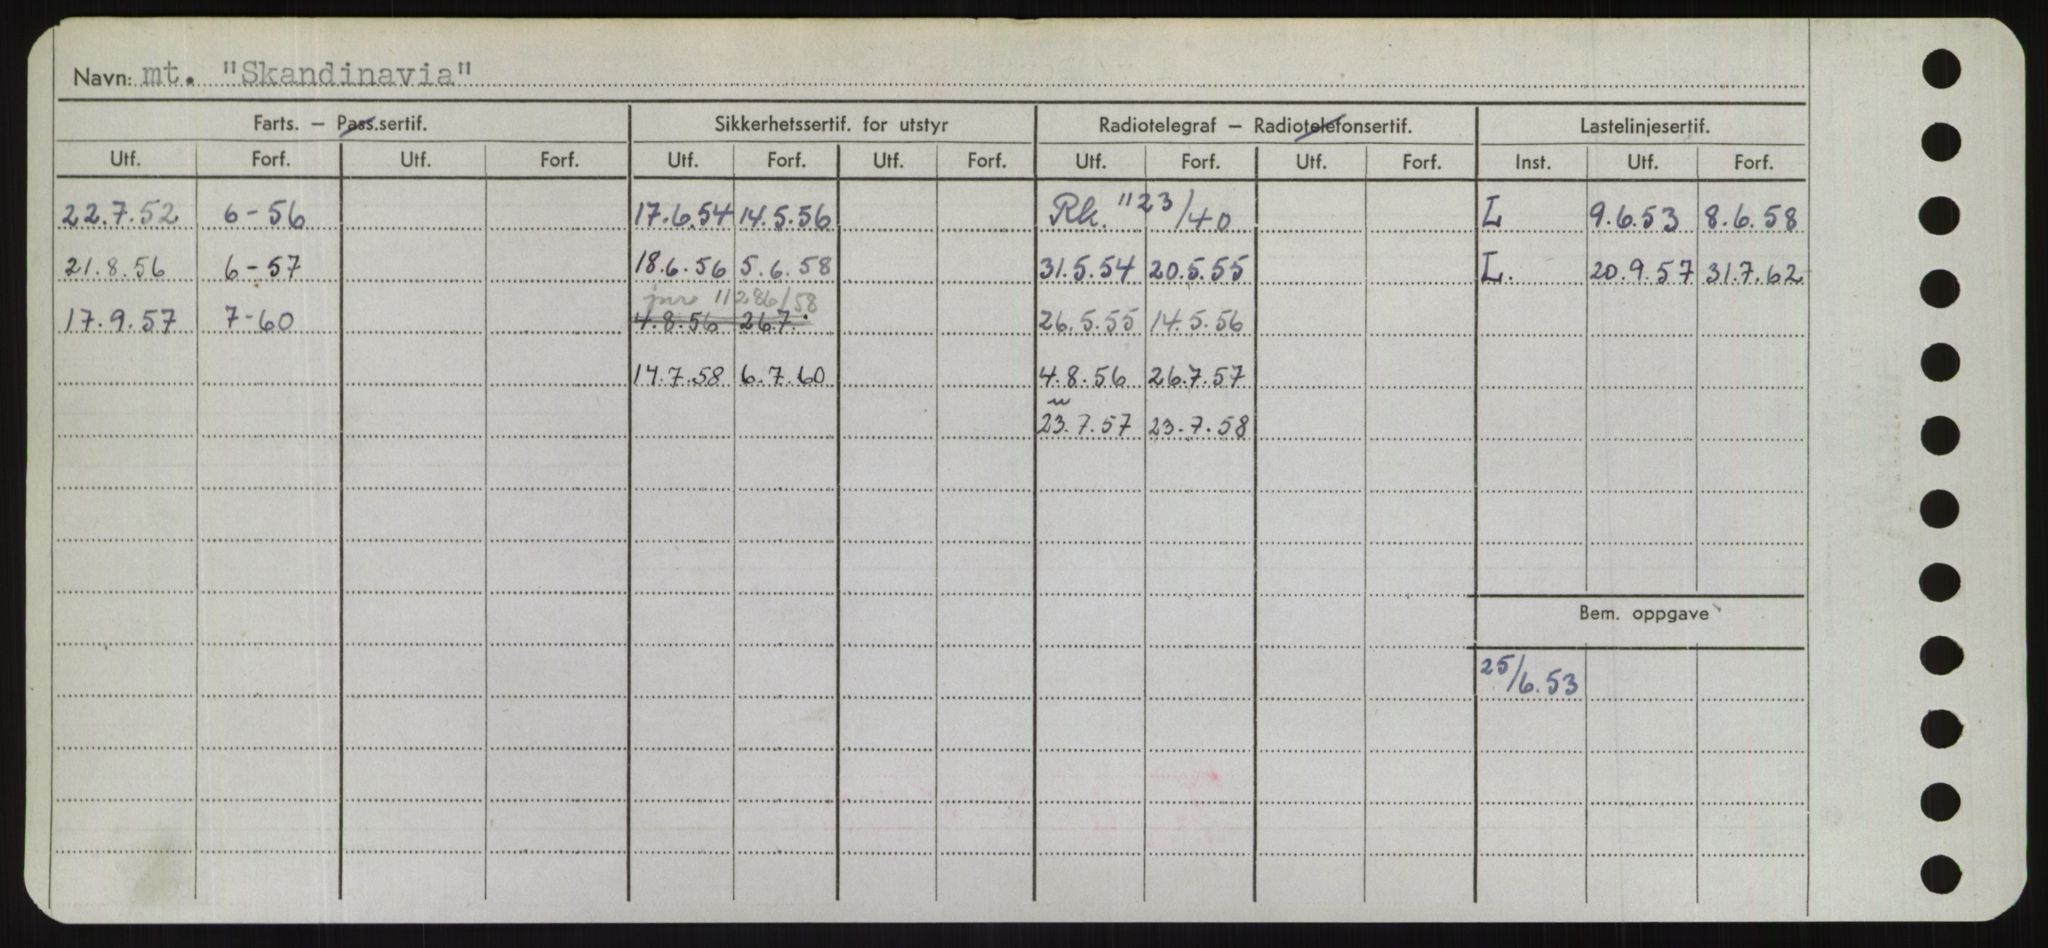 Navn: mt. "Skandinavia"
Farts. — Pass.sertif. Sikkerhetssertif. for utstyr Radiotelegraf — Radiotelefonsertif. Lastelinjesertif.
Utf. Forf. Utf. Forf. Utf. Forf. Utf. Forf. Utf. Forf. Utf. Forf. Inst. Utf. Forf.
22.7.52 6-56 17.6.54 14.5.56 Rk. "23/40 L 9.6.53 8.6.58
21.8.56 6-57 18.6.56 5.6.58 31.5.54 20.5.55 L. 20.9.57 31.7.62
jnr 11286/58
17.9.57 7-60 4.8.56 26.7. 26.5.55 14.5.56
14.7.58 6.7.60 4.8.56 26.7.57
23.7.57 23.7.58
Bem. oppgave
25/6.53